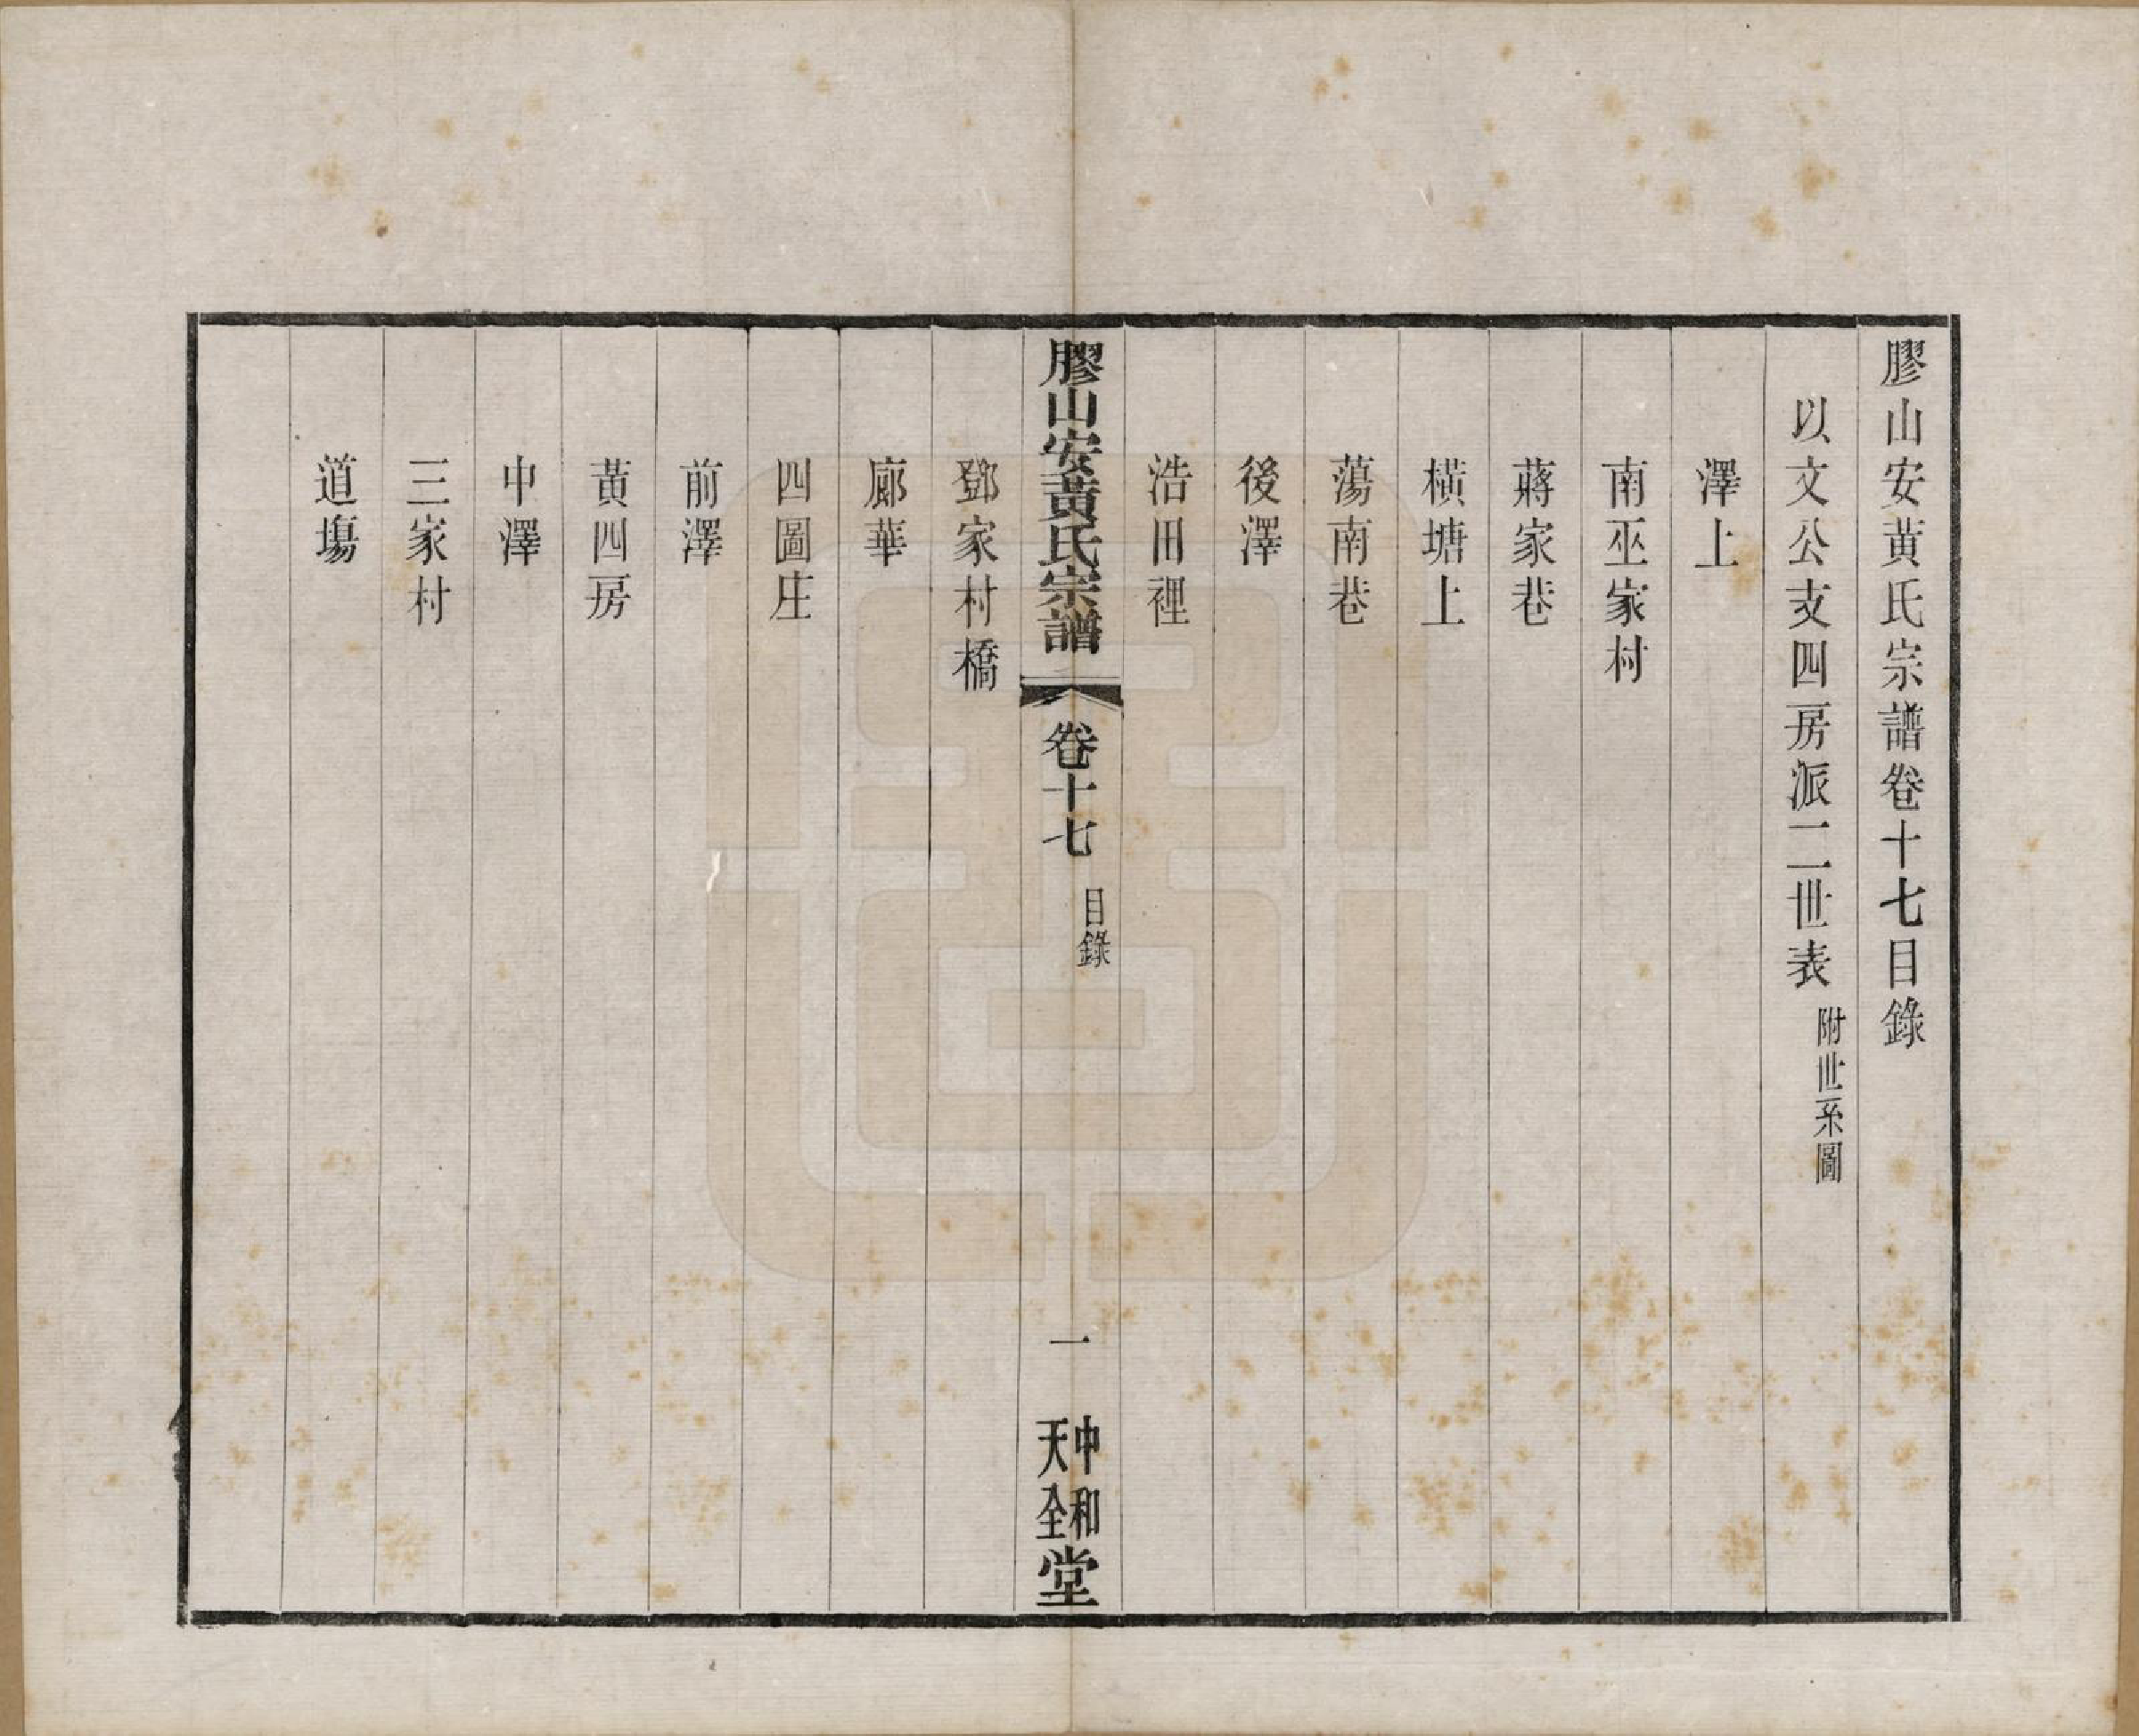 膠山安黃氏宗譜卷十七目錄
以文公支四房派二世表 附世系圖
澤上
南巫家村
蔣家巷
橫塘上
蕩南巷
後澤
浩田裡
膠山安黃氏宗譜 卷十七 目錄 一 中和天全堂
鄧家村橋
廊華
四圖庄
前澤
黃四房
中澤
三家村
道塲